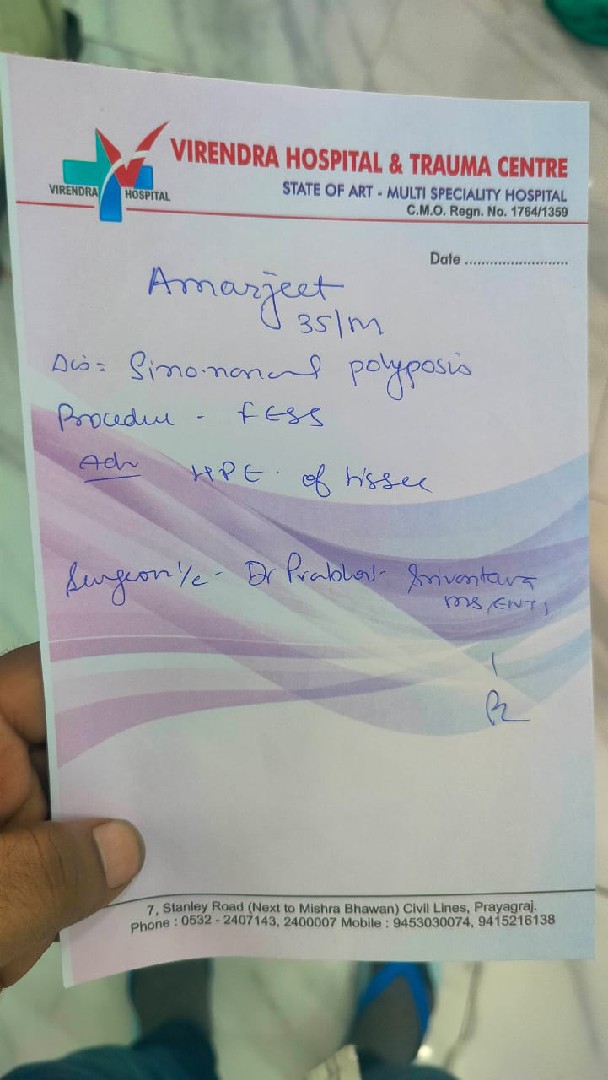 VIRENDRA HOSPITAL
VIRENDRA HOSPITAL & TRAUMA CENTRE
STATE OF ART - MULTI SPECIALITY HOSPITAL
C.M.O. Regn. No. 1764/1359
Date ........................
Amarjeet
35/M
Sinonasal polyposis
Procedure - FESS
Adv HPE of tissue
Surgeon i/c - Dr Prabhat Srivastava
MS, ENT
7, Stanley Road (Next to Mishra Bhawan) Civil Lines, Prayagraj.
Phone : 0532 - 2407143, 2400007 Mobile : 9453030074, 9415216138